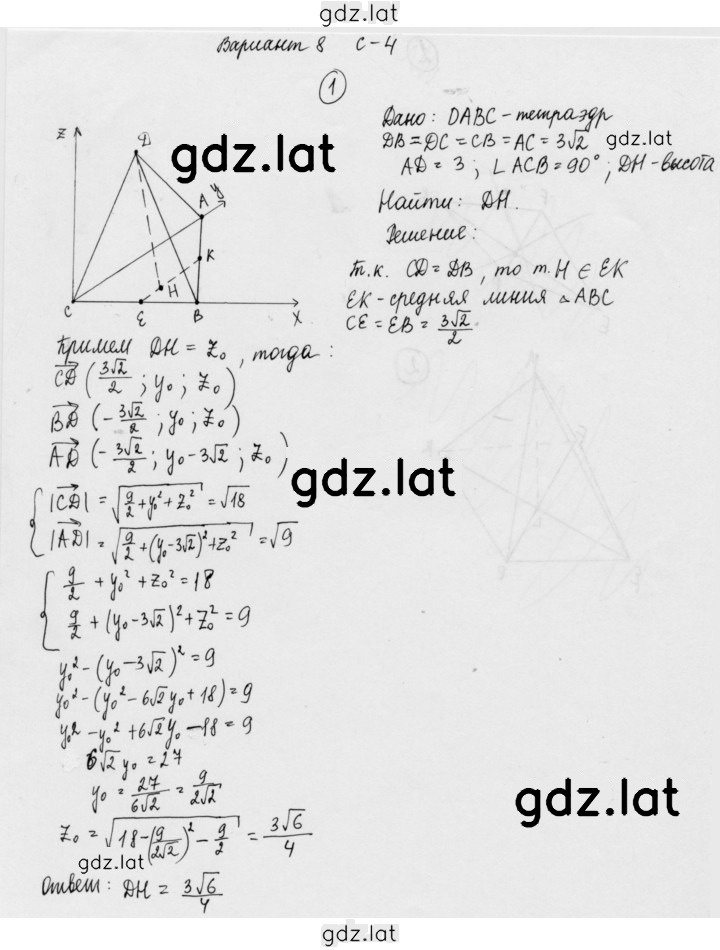 gdz.lat
Вариант 8 С-4
1
Дано: DABC - тетраэдр
DB = DC = CB = AC = 3√2
gdz.lat
gdz.lat
AD = 3; ∠ACB = 90°; DH - высота
Найти: DH.
Решение:
Т.к. CD = DB, то т. H ∈ EK
EK - средняя линия △ABC
CE = EB = 3√2/2
Z
D
A
y
K
H
C
E
B
X
Примем DH = Z₀, тогда:
CD (3√2/2; y₀; Z₀)
BD (-3√2/2; y₀; Z₀)
AD (-3√2/2; y₀ - 3√2; Z₀)
gdz.lat
|CD| = √(9/2 + y₀² + z₀²) = √18
|AD| = √(9/2 + (y₀ - 3√2)² + z₀²) = √9
9/2 + y₀² + z₀² = 18
9/2 + (y₀ - 3√2)² + z₀² = 9
y₀² - (y₀ - 3√2)² = 9
y₀² - (y₀² - 6√2y₀ + 18) = 9
y₀² - y₀² + 6√2y₀ - 18 = 9
6√2y₀ = 27
y₀ = 27/6√2 = 9/2√2
gdz.lat
z₀ = √(18 - (9/2√2)² - 9/2) = 3√6/4
gdz.lat
Ответ: DH = 3√6/4
gdz.lat